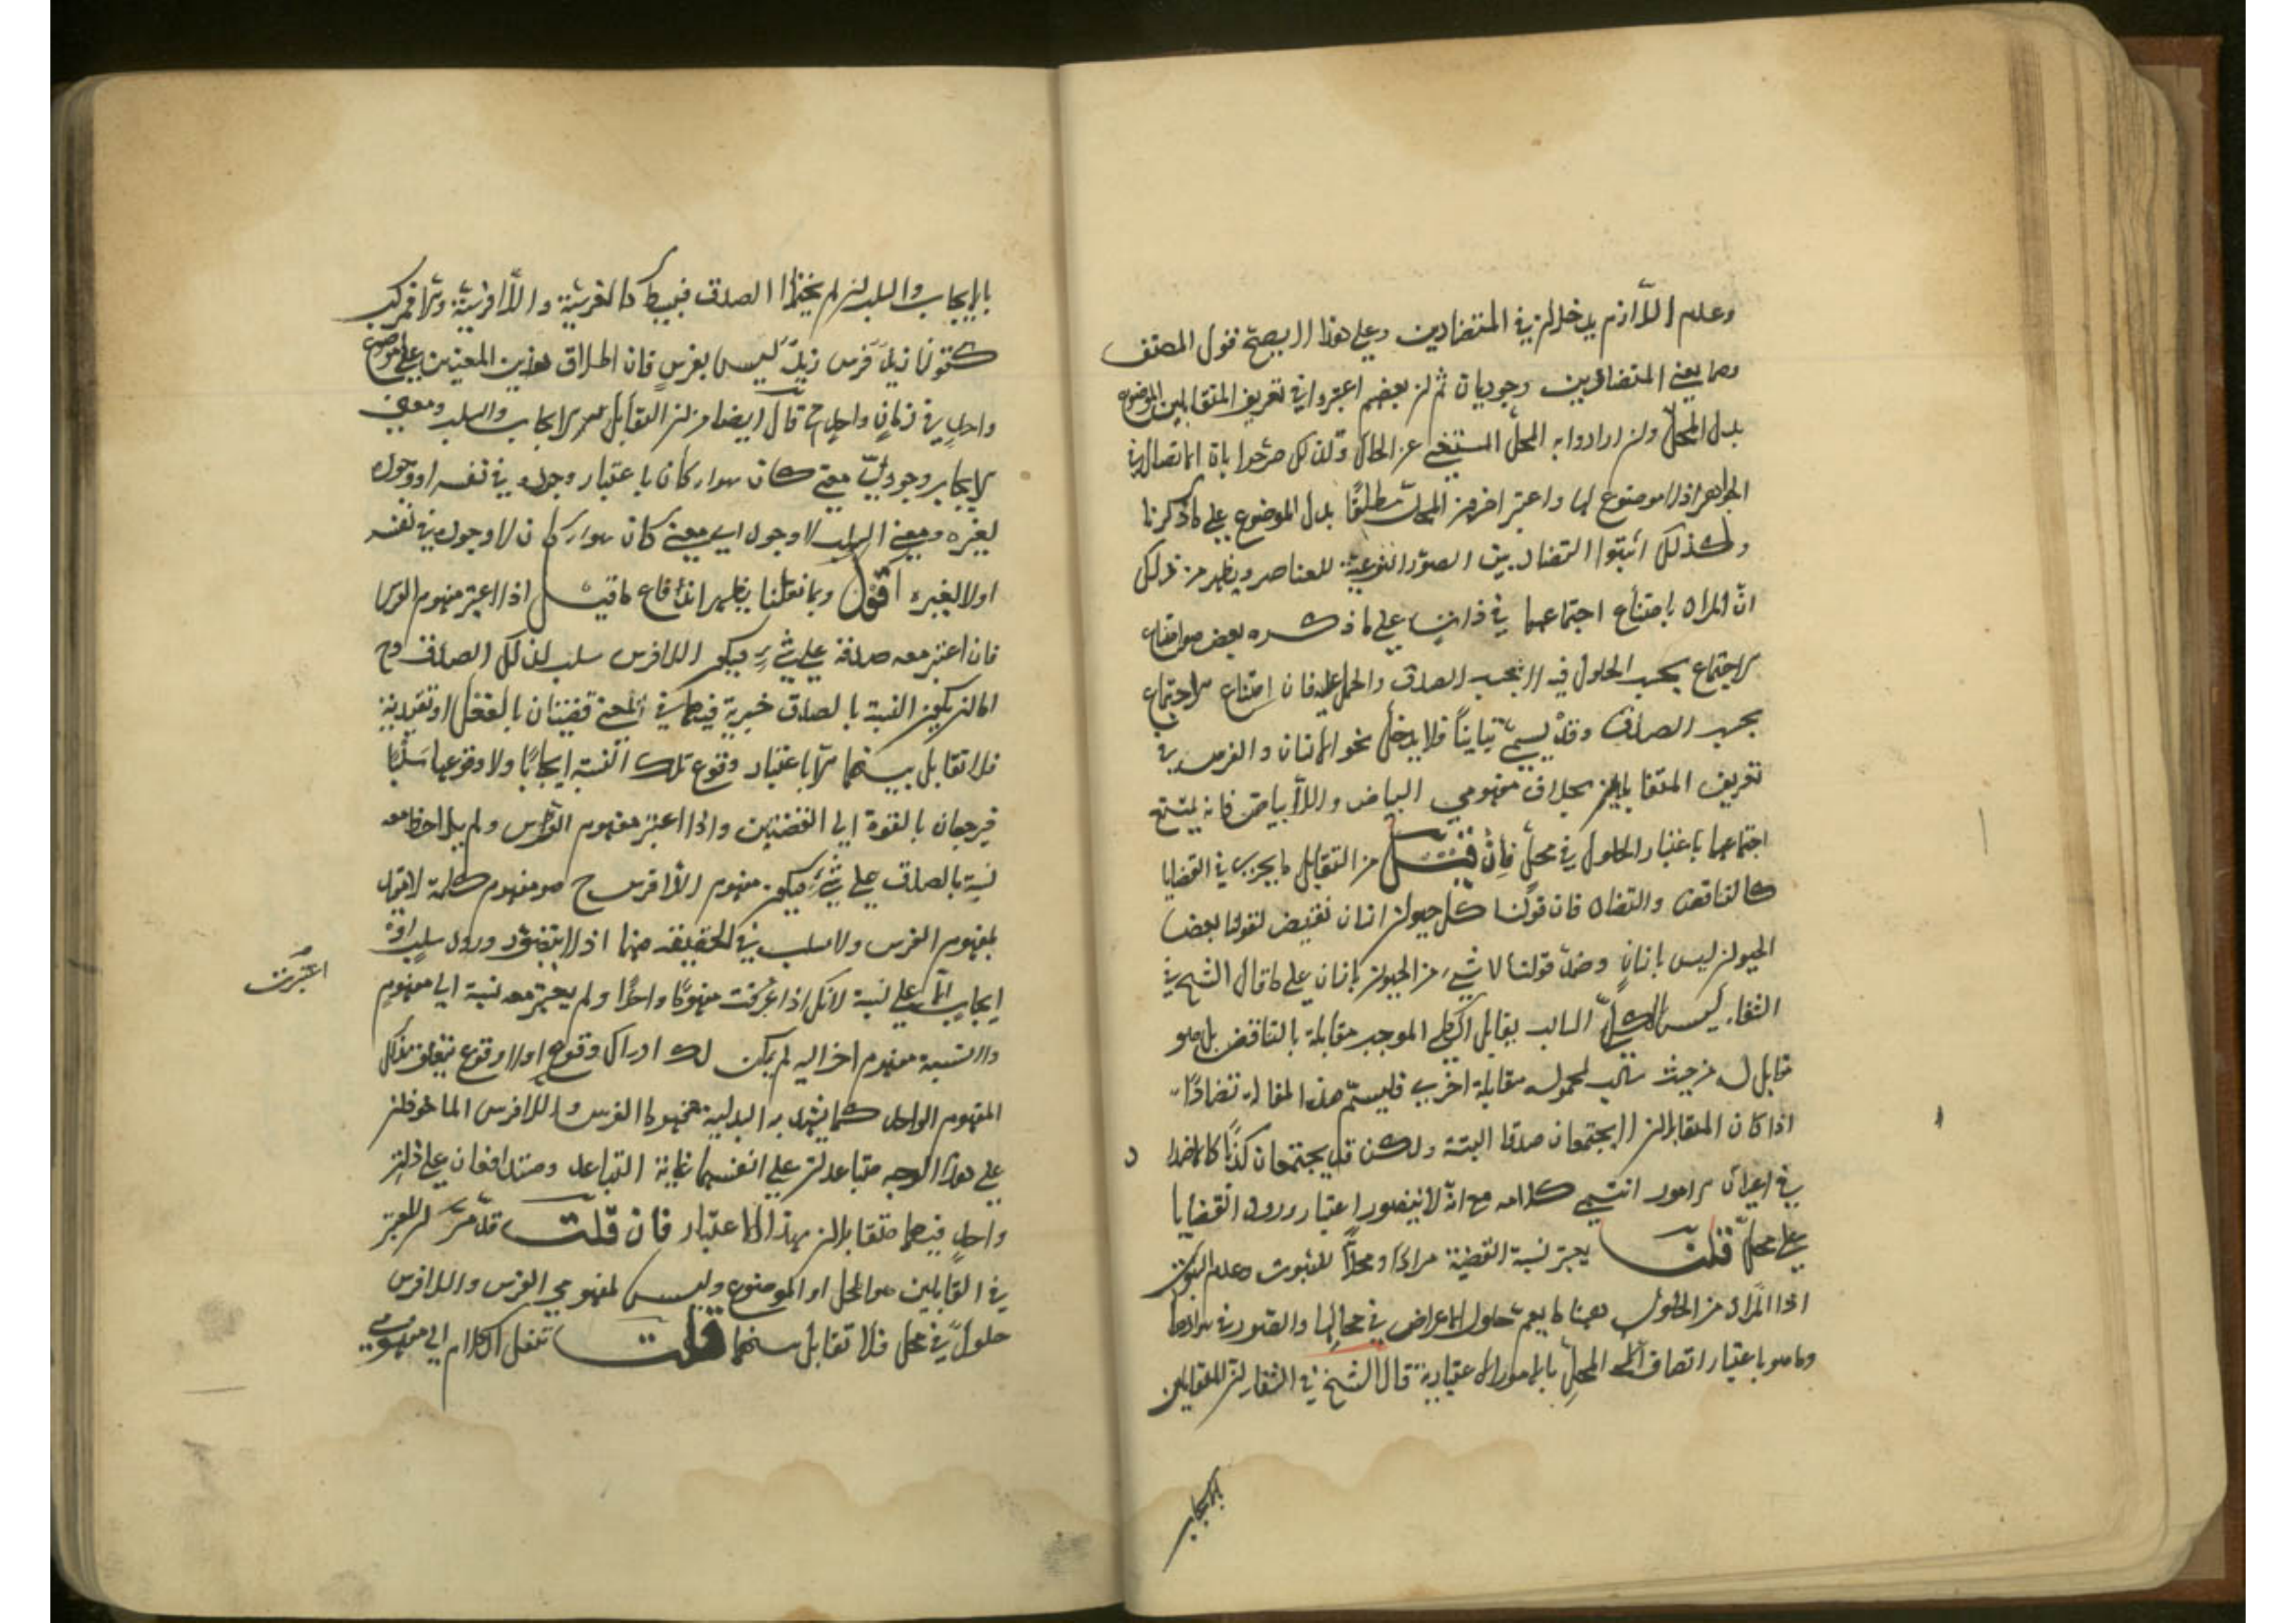 وعدم اللازم يدخلان في المتضادين وعلى هذا لا يصح قول المصنف
وهما يعني المتضادين وجوديان ثم ان بعضهم اعتبروا في تعريف المتقابلين الموضوع
بدل المحل وان ارادوا به المحل المستغني عن الحال ولذلك صرحوا بان لا تضاد في
الجواهر اذ لا موضوع لها واعتبر اخرون المحل مطلقا بدل الموضوع على ما ذكرنا
ولذلك اثبتوا التضاد بين الصور النوعية للعناصر ويظهر من ذلك
ان المراد بامتناع اجتماعهما في ذات على ما ذكره بعض هو امتناع
الاجتماع بحسب الحلول فيه لا بحسب الصدق والحمل عليه فان امتناع الاجتماع
بحسب الصدق وقد يسمى تباينا فلا يدخل نحو الانسان والفرس في
تعريف المتقابلين بخلاف مفهومي البياض واللابياض فانه يمتنع
اجتماعهما باعتبار الحلول في محل فان قيل من التقابل ما يجري في القضايا
كالتناقض والتضاد فان قولنا كل حيوان انسان نقيض لقولنا بعض
الحيوان ليس بانسان وضد قولنا لا شيء من الحيوان بانسان على ما قال الشيخ في
الشفاء ليس الكلي السالب يقابل الكلي الموجب مقابلة بالتناقض بل هو
مقابل له من حيث سالب لمحموله مقابلة اخرى فلنسم هذه المقابلة تضادا
اذا كان المتقابلان لا يجتمعان صدقا البتة ولكن قد يجتمعان كذبا كالاضداد
في اعيان الامور انتهى كلامه مع انه لا يتصور اعتبار ورود القضايا
على محل قلت يعتبر نسبة القضية مرادا ومحلا للثبوت وعدم الثبوت
اذا المراد من الحلول ههنا ما يعم حلول الاعراض في محالها والصور في موادها
وما هو باعتبار اتصاف المحل بالامور الاعتبارية قال الشيخ في الشفاء ان المتقابلين
بالايجاب
بالايجاب والسلب ان لم يحتملا الصدق فبسيط كالفرسية واللافرسية والا فمركب
كقولنا زيد فرس زيد ليس بفرس فان اطلاق هذين المعنيين على موضوع
واحد في زمان واحد مح قال ايضا ان من التقابل الايجاب والسلب ومعنى
الايجاب وجود اي معنى كان سواء كان باعتبار وجوده في نفسه او وجوده
لغيره ومعنى السلب لا وجود اي معنى كان سواء كان لا وجوده في نفسه
او لا لغيره اقول وبما نقلنا يظهر اندفاع ما قيل اذا اعتبر مفهوم الفرس
فان اعتبر معه صدقه على شيء فيكون اللافرس سلب لذلك الصدق وح
اما ان يكون النسبة بالصدق خبرية فهما في المعنى قضيتان بالفعل او تقييدية
فلا تقابل بينهما الا باعتبار وقوع تلك النسبة ايجابا ولا وقوعها سلبا
فيرجعان بالقوة الى القضيتين واذا اعتبر مفهوم الفرس ولم يلاحظ معه
نسبة بالصدق على شيء فيكون مفهوم اللافرس ح هو مفهوم كلمة لا مقيد
بمفهوم الفرس ولا سلب في الحقيقة ههنا اذ لا يتصور ورود سلب او
ايجاب الا على نسبة لانك اذا عرفت مفهوما واحدا ولم يعتبر معه نسبة الى مفهوم
اعتبرت
ولا نسبة مفهوم اخر اليه لم يمكن لك ادراك وقوع او لا وقوع متعلق بذلك
المفهوم الواحد كما يشهد به البديهة فمفهوما الفرس واللافرس الماخوذان
على هذا الوجه متباعدان على انفسهما غاية التباعد ومتدافعان على ذات
واحد فهما متقابلان بهذا الاعتبار فان قلت قد مر ان المعتبر
في القابلين هو المحل او الموضوع وليس لمفهومي الفرس واللافرس
حلول في محل فلا تقابل بينهما قلت ننقل الكلام الى مفهومي